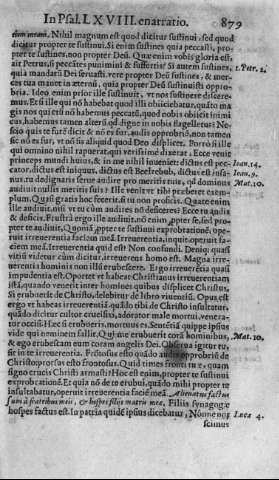 In Psal. LXVIII. enarratio. 879
eum meam. Nihil magnum est quod dicitur sustinui, sed quod
dicitur propter te sustinui. Si enim sustines quia peccasti, prop-
ter te sustines, non propter Deū. Quæ enim vobis gloria est,
ait Petrus, si peccātes punimini & suffertis? Si autem sustines,
1. Petr. 2.
quia mandatū Dei servasti, vere propter Deū sustines, &
ces tua manet in æternū, quia propter Deū sustinuisti oppro-
bria. Ideo enim prior ille sustinuit, vt nos sustinere
remus. Et si illi qui nō habebat quod illi obiiciebatur, quāto ma-
gis nos qui etsi nō habemus peccatū, quod nobis obiicit inimi-
cus, habemus tamen aliter
scio quis te fur dicit & nō es fur, audis opprobriū, non tamen
sic nō es fur, vt nō sis aliquid quod Deo displicet. Porrò si ille
qui omnino nihil rapuerat, qui verissimè dixerat, Ecce venit
princeps mundi huius, & in me nihil inueniet: dictus est pec-
Ioan. 14.
cator, dictus est iniquus, dictus est Beelzebub, dictus est insa-
Ioan. 9.
nus: tu dedignaris serue audire pro meritis tuis, quod dominus
Mat. 10.
audiuit nullis meritis suis? Ille venit vt tibi præberet exem-
plum. Quasi gratis hoc fecerit, si tu non proficis. Quare enim
ille audiuit, nisi vt tu cùm audires nō deficeres? Ecce tu audis
& deficis. Frustrà ergo ille audiuit, nō enim propter se, sed prop-
ter te audiuit. Quoniā propter te sustinui exprobrationē, ope-
ruit irreuerentia faciem meā. Irreuerentia, inquit, operuit fa-
ciem meā. Irreuerentia quid est? Non confundi. Denique quasi
vitiū videtur cùm dicitur, irreuerens homo est. Magna irre-
uerentia hominis non illū erubescere. Ergo irreuerētia quasi
impudentia est. Oportet vt habeat Christianus irreuerentiam
istā, quando venerit inter homines quibus displicet Christus.
Si erubuerit de Christo, delebitur de libro viuentiū. Opus est
ergo vt habeas irreuerentiā quādo tibi de Christo insultatur,
quādo dicitur cultor crucifixi, adorator malè mortui, venera-
tor occisi. Hæc si erubueris, mortuus es. Sententiā quippe ipsius
vide qui neminem fallit, Qui me erubuerit corā hominibus,
Mat. 10.
& ego erubescam eum coram angelis Dei. Obserua igitur tu,
sit in te irreuerentia. Frōtosus esto quādo audis opprobriū de
Christo, prorsus esto frontosus. Quid times fronti tuæ, quam
signo crucis Christi armasti? Hoc est enim, propter te sustinui
exprobrationē. Et quia nō de te erubui, quādo mihi propter te
insultabatur, operuit irreuerentia facie meā. Alienatus factus
sum à fratribus meis, & hospes filiis matris meæ. Filiis synagogæ
hospes factus est. In patria quidē ipsius dicebatur, Nōnne nos
Luca 4.
scimus